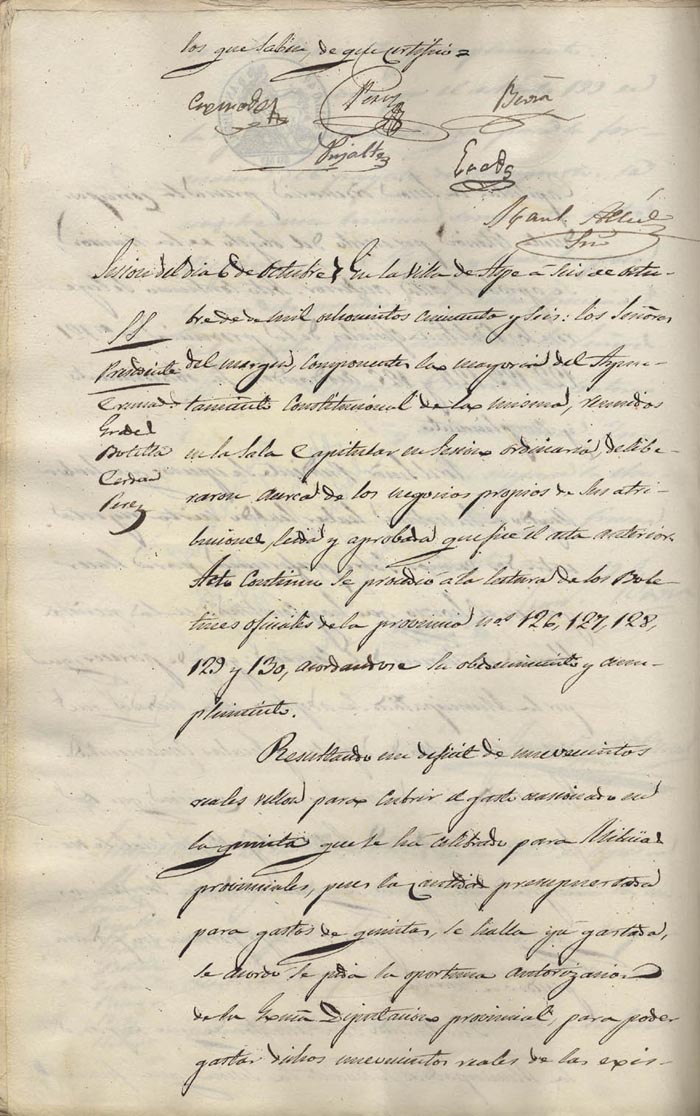 los que saben, de que certifico =
Perez
Pujalte
Sesion del dia 6 de Octubre
En la Villa de Aspe á seis de octu-
SS
bre de mil ochocientos cincuenta y seis: los Señores
Presidente
del margen, componentes la mayoria del Ayun-
Cremades
tamiento Constitucional de la misma, reunidos
Botella
en la Sala Capitular en sesion ordinaria, delibe-
Cerdan
raron acerca de los negocios propios de sus atri-
Perez
buciones, leida y aprobada que fué el acta anterior.
Acto continuo se procedió á la lectura de los Bole-
tines oficiales de la provincia nos 126, 127, 128,
129 y 130, acordandose su obedecimiento y cum-
plimiento.
Resultando un deficit de nuevecientos
reales vellon para cubrir el gasto ocasionado en
la quinta que se há celebrado para Milicias
provinciales, pues la cantidad presupuestada
para gastos de quintas, se halla yá gastada,
se acordó se pida la oportuna autorizacion
de la Exma Diputacion provincial, para poder
gastar dichos nuevecientos reales de las exis-